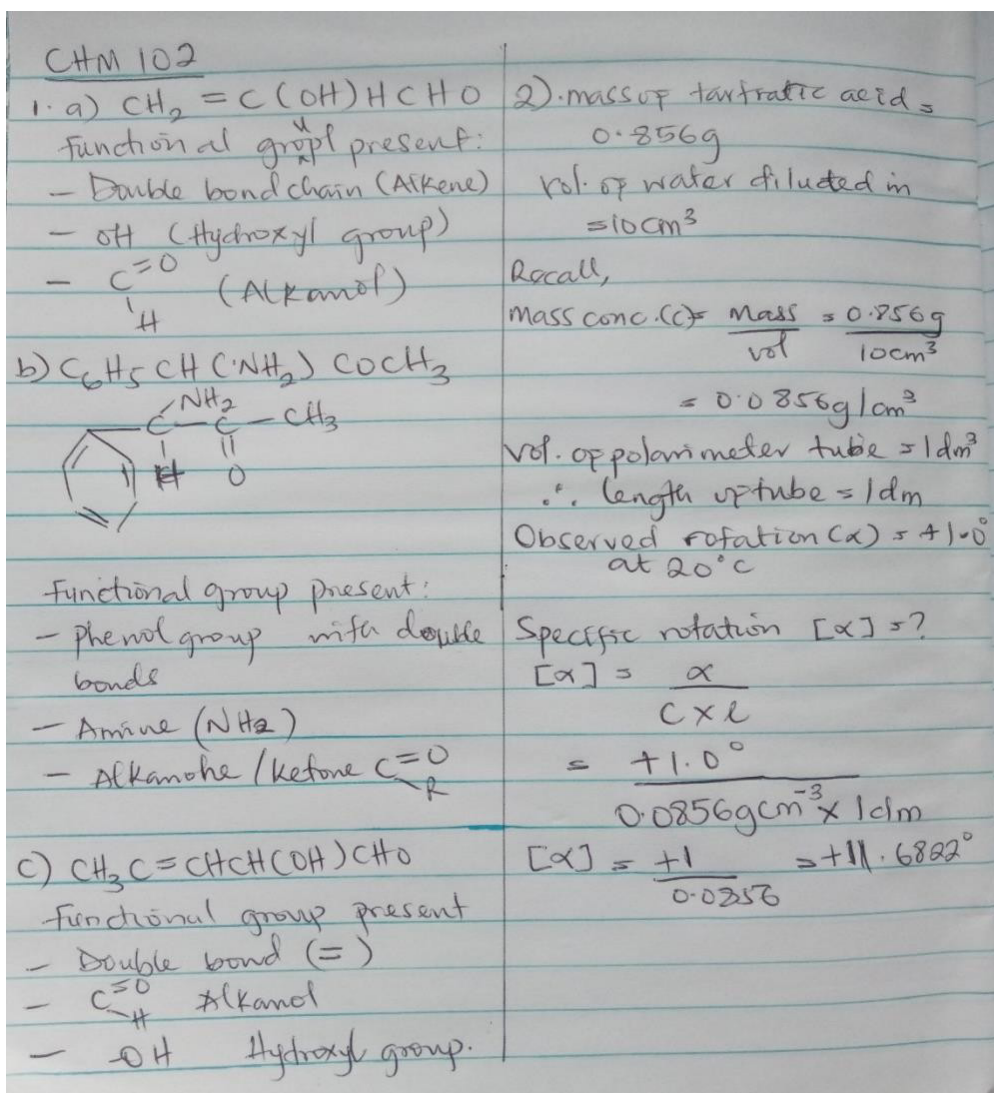 CHM 102
1. a) CH₂ = C(OH)HCHO
functional group present:
- Double bond chain (Alkene)
- OH (Hydroxyl group)
- C=O (Alkanol)
H
b) C₆H₅CH(NH₂)COCH₃
NH₂
C-C-CH₃
H O
functional group present:
- Phenol group with double
bonds
- Amine (NH₂)
- Alkanone/ketone C=O
R
c) CH₃C=CHCH(OH)CHO
functional group present
- Double bond (=)
- C=O Alkanol
-H
- -OH Hydroxyl group.
2). mass of tartratic acid =
0.856g
vol. of water diluted in
=10cm³
Recall,
mass conc.(C)= Mass = 0.856g
vol 10cm³
= 0.0856g/cm³
Vol. of polarimeter tube = 1dm³
∴ length of tube = 1dm
Observed rotation (α) = +1.0°
at 20°C
Specific rotation [α] =?
[α] = α
C×l
= +1.0°
0.0856gcm⁻³ × 1dm
[α] = +1 =+11.6822°
0.0856